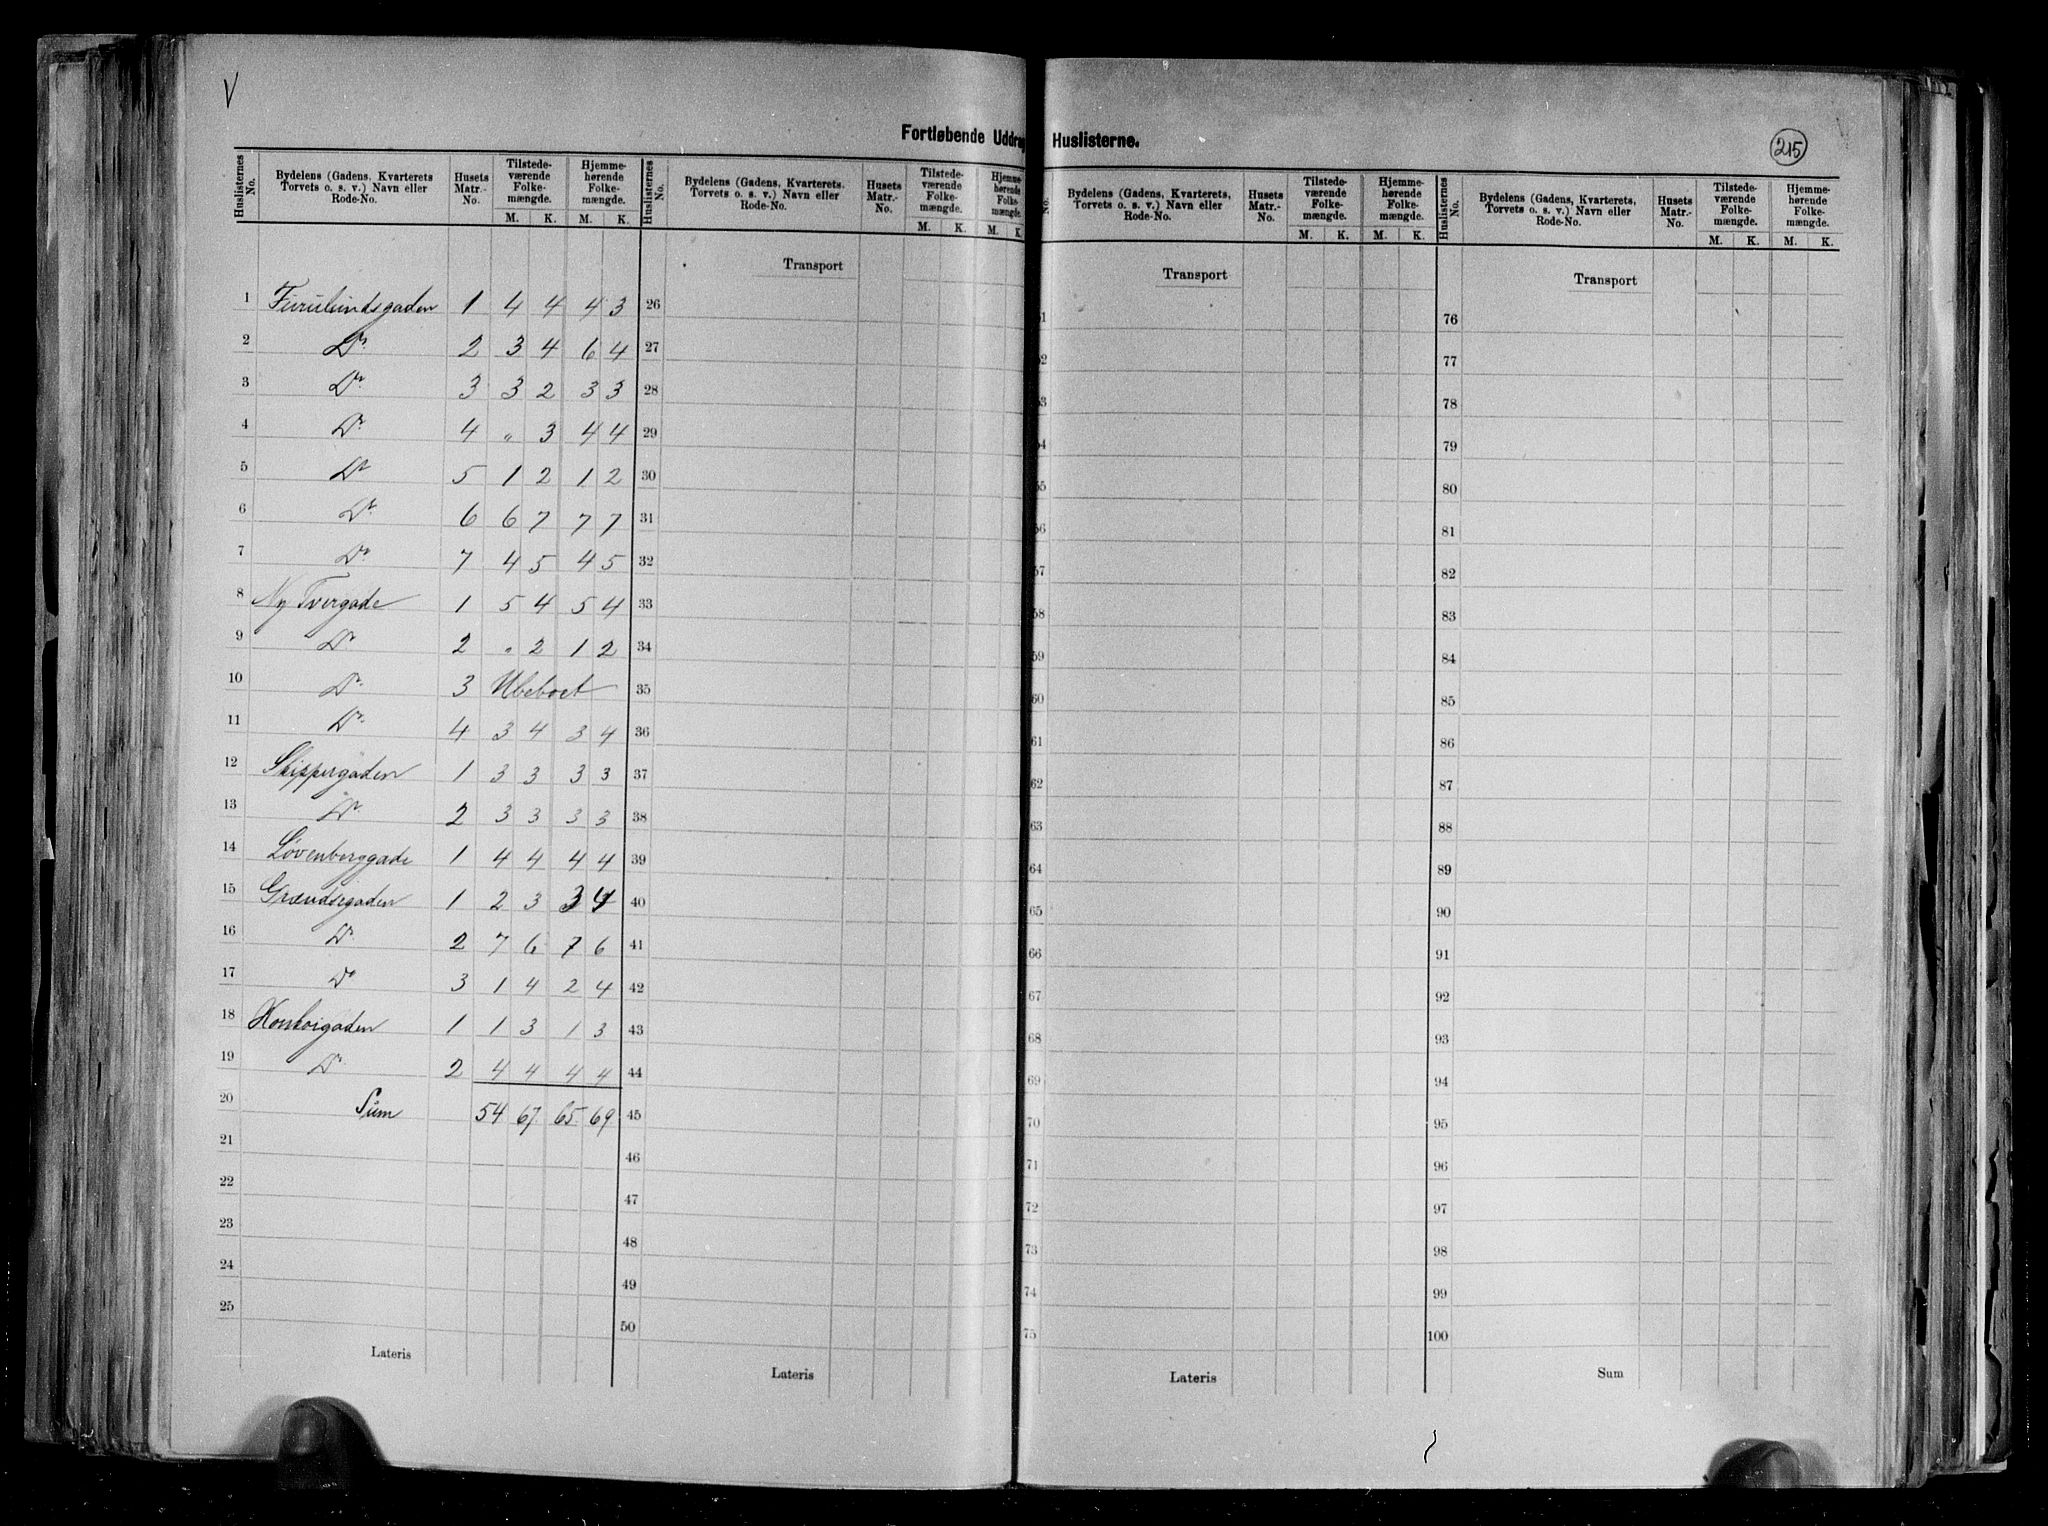 V
Fortløbende Uddrag Huslisterne.
215
Huslisternes No. Bydelens (Gadens, Kvarterets Torvets o. s. v.) Navn eller Rode-No. Husets Matr.-No. Tilstede-værende Folke-mængde. M. K. Hjemme-hørende Folke-mængde. M. K.
1 Furulundsgaden 1 4 4 4 3
2 Do. 2 3 4 6 4
3 Do. 3 3 2 3 3
4 Do. 4 „ 3 4 4
5 Do 5 1 2 1 2
6 Do. 6 6 7 7 7
7 Do. 7 4 5 4 5
8 Ny Tvergade 1 5 4 5 4
9 Do 2 „ 2 1 2
10 Do. 3 Ubeboet
11 Do. 4 3 4 3 4
12 Skippergaden 1 3 3 3 3
13 Do. 2 3 3 3 3
14 Løvenberggade 1 4 4 4 4
15 Grændsegaden 1 2 3 3 4
16 Do. 2 7 6 7 6
17 Do 3 1 4 2 4
18 1 1 3 1 3
19 Do. 2 4 4 4 4
20 Sum 54 67 65 69
21
22
23
24
25
Lateris
Huslisternes No. Bydelens (Gadens, Kvarterets, Torvets o. s. v.) Navn eller Rode-No. Husets Matr.-No. Tilstede-værende Folke-mængde. M. K. Hjemme-hørende Folke-mængde. M. K.
Transport
26
27
28
29
30
31
32
33
34
35
36
37
38
39
40
41
42
43
44
45
46
47
48
49
50
Lateris
No. Bydelens (Gadens, Kvarterets, Torvets o. s. v.) Navn eller Rode-No. Husets Matr.-No. Tilstede-værende Folke-mængde. M. K. Hjemme-hørende Folke-mængde. M. K.
Transport
51
52
53
54
55
56
57
58
59
60
61
62
63
64
65
66
67
68
69
70
71
72
73
74
75
Lateris
Huslisternes No. Bydelens (Gadens, Kvarterets, Torvets o. s. v.) Navn eller Rode-No. Husets Matr.-No. Tilstede-værende Folke-mængde. M. K. Hjemme-hørende Folke-mængde. M. K.
Transport
76
77
78
79
80
81
82
83
84
85
86
87
88
89
90
91
92
93
94
95
96
97
98
99
100
Sum